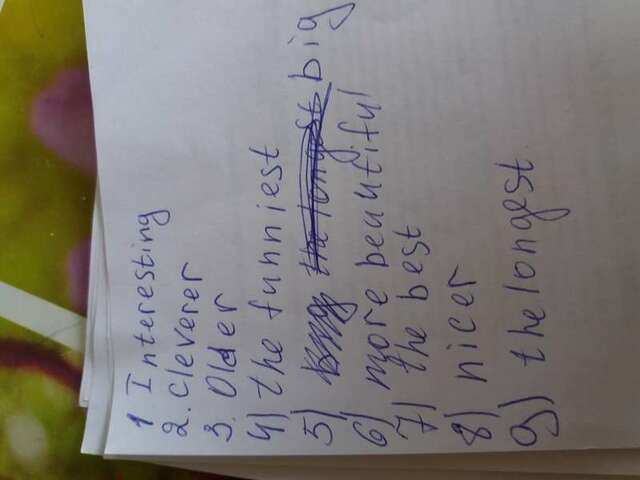 1 Interesting
2. Cleverer
3. Older
4) the funniest
5) the longest big
6) more beautiful
7) the best
8) nicer
9) the longest